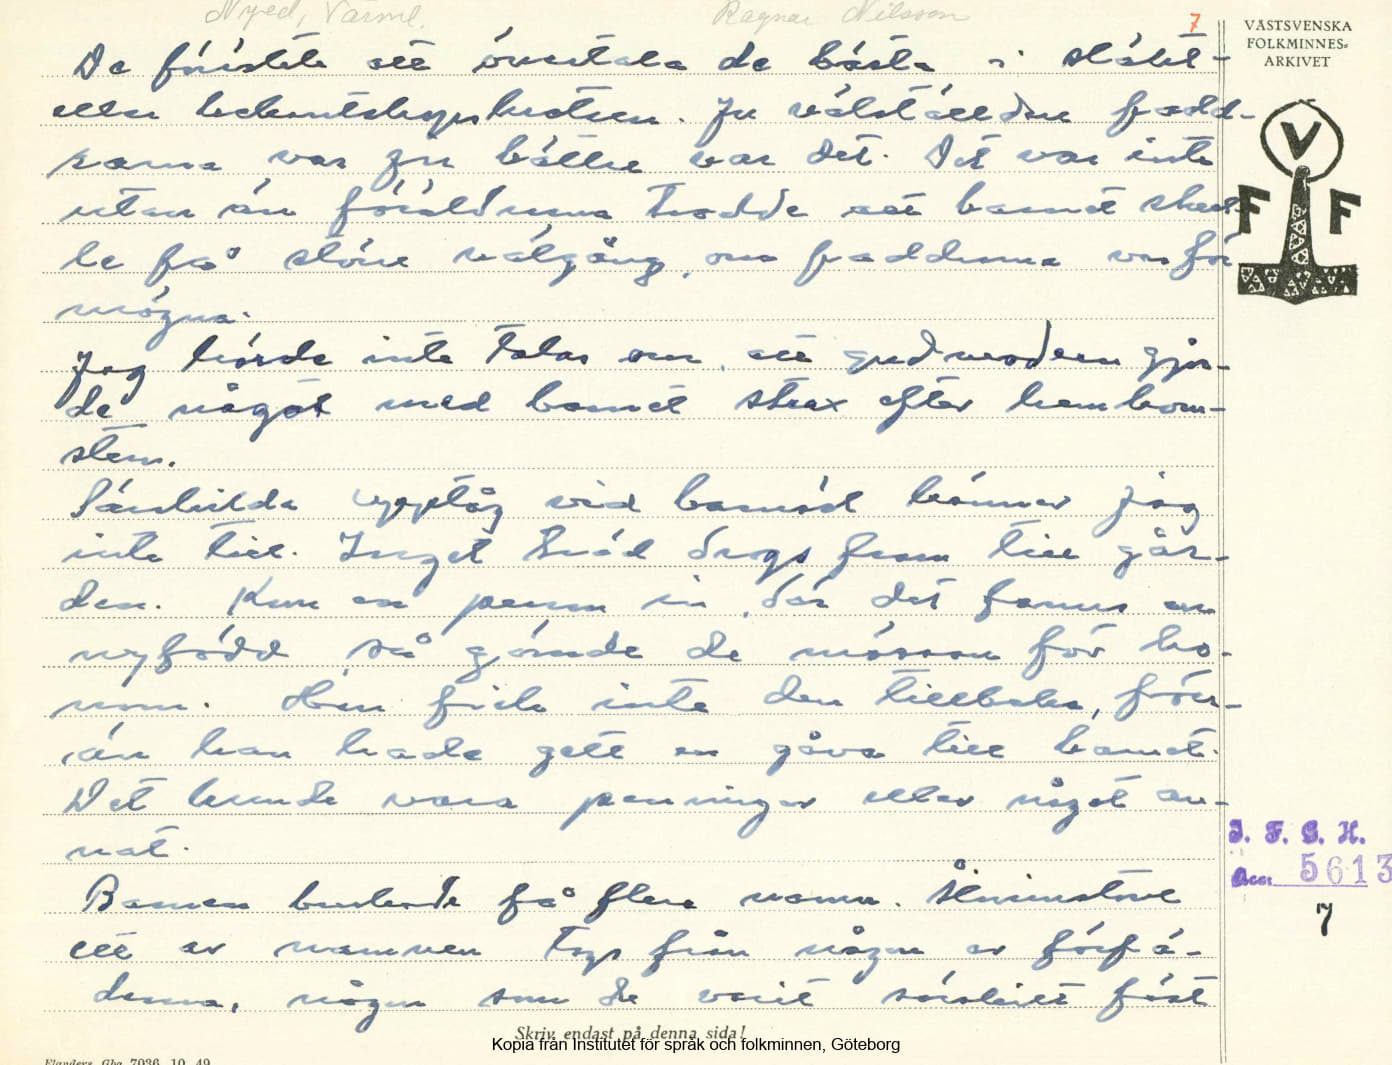 Nyed, Värml. Ragnar Nilsson 7
VÄSTSVENSKA
FOLKMINNES-
ARKIVET
V
F F
De försökte att övertala de bästa i släkt-
eller bekantskapskretsen. Ju välställdare fadd-
rarna var ju bättre var det. Det var inte
utan än föräldrarna trodde att barnet skul-
le få större välgång, om faddrarna var för
mögna.
Jag hörde inte talas om, att gudmodern gjor-
de något med barnet strax efter hemkom-
sten.
Särskilda upptåg vid barnsöl känner jag
inte till. Inget träd drogs fram till går-
den. Kom en person in, där det fanns en
nyfödd så gömde de mössan för ho-
nom. Han fick inte den tillbaka, förr-
än han hade gett en gåva till barnet.
Det kunde vara penningar eller något an-
nat.
Barnen brukade få flera namn. Åtminstone
ett av namnen togs från någon av förfä-
derna, någon som de varit särskilt fäst
I. F. G. H.
Acc. 5613
7
Skriv endast på denna sida!
Kopia från Institutet för språk och folkminnen, Göteborg
Flanders, Gbg 7036. 10. 49